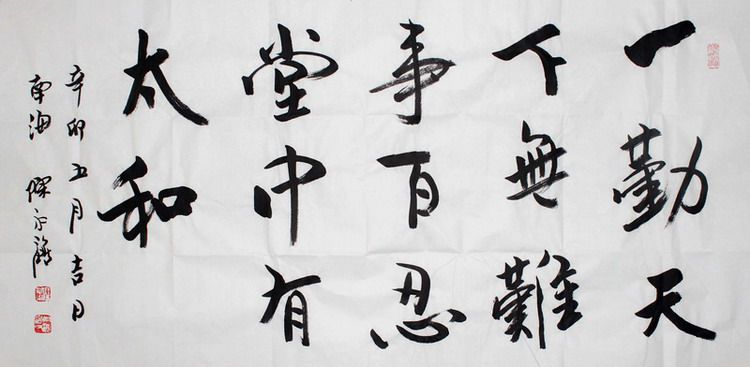 一勤天
下無難
事百忍
堂中有
太和
辛卯五月吉日
南海